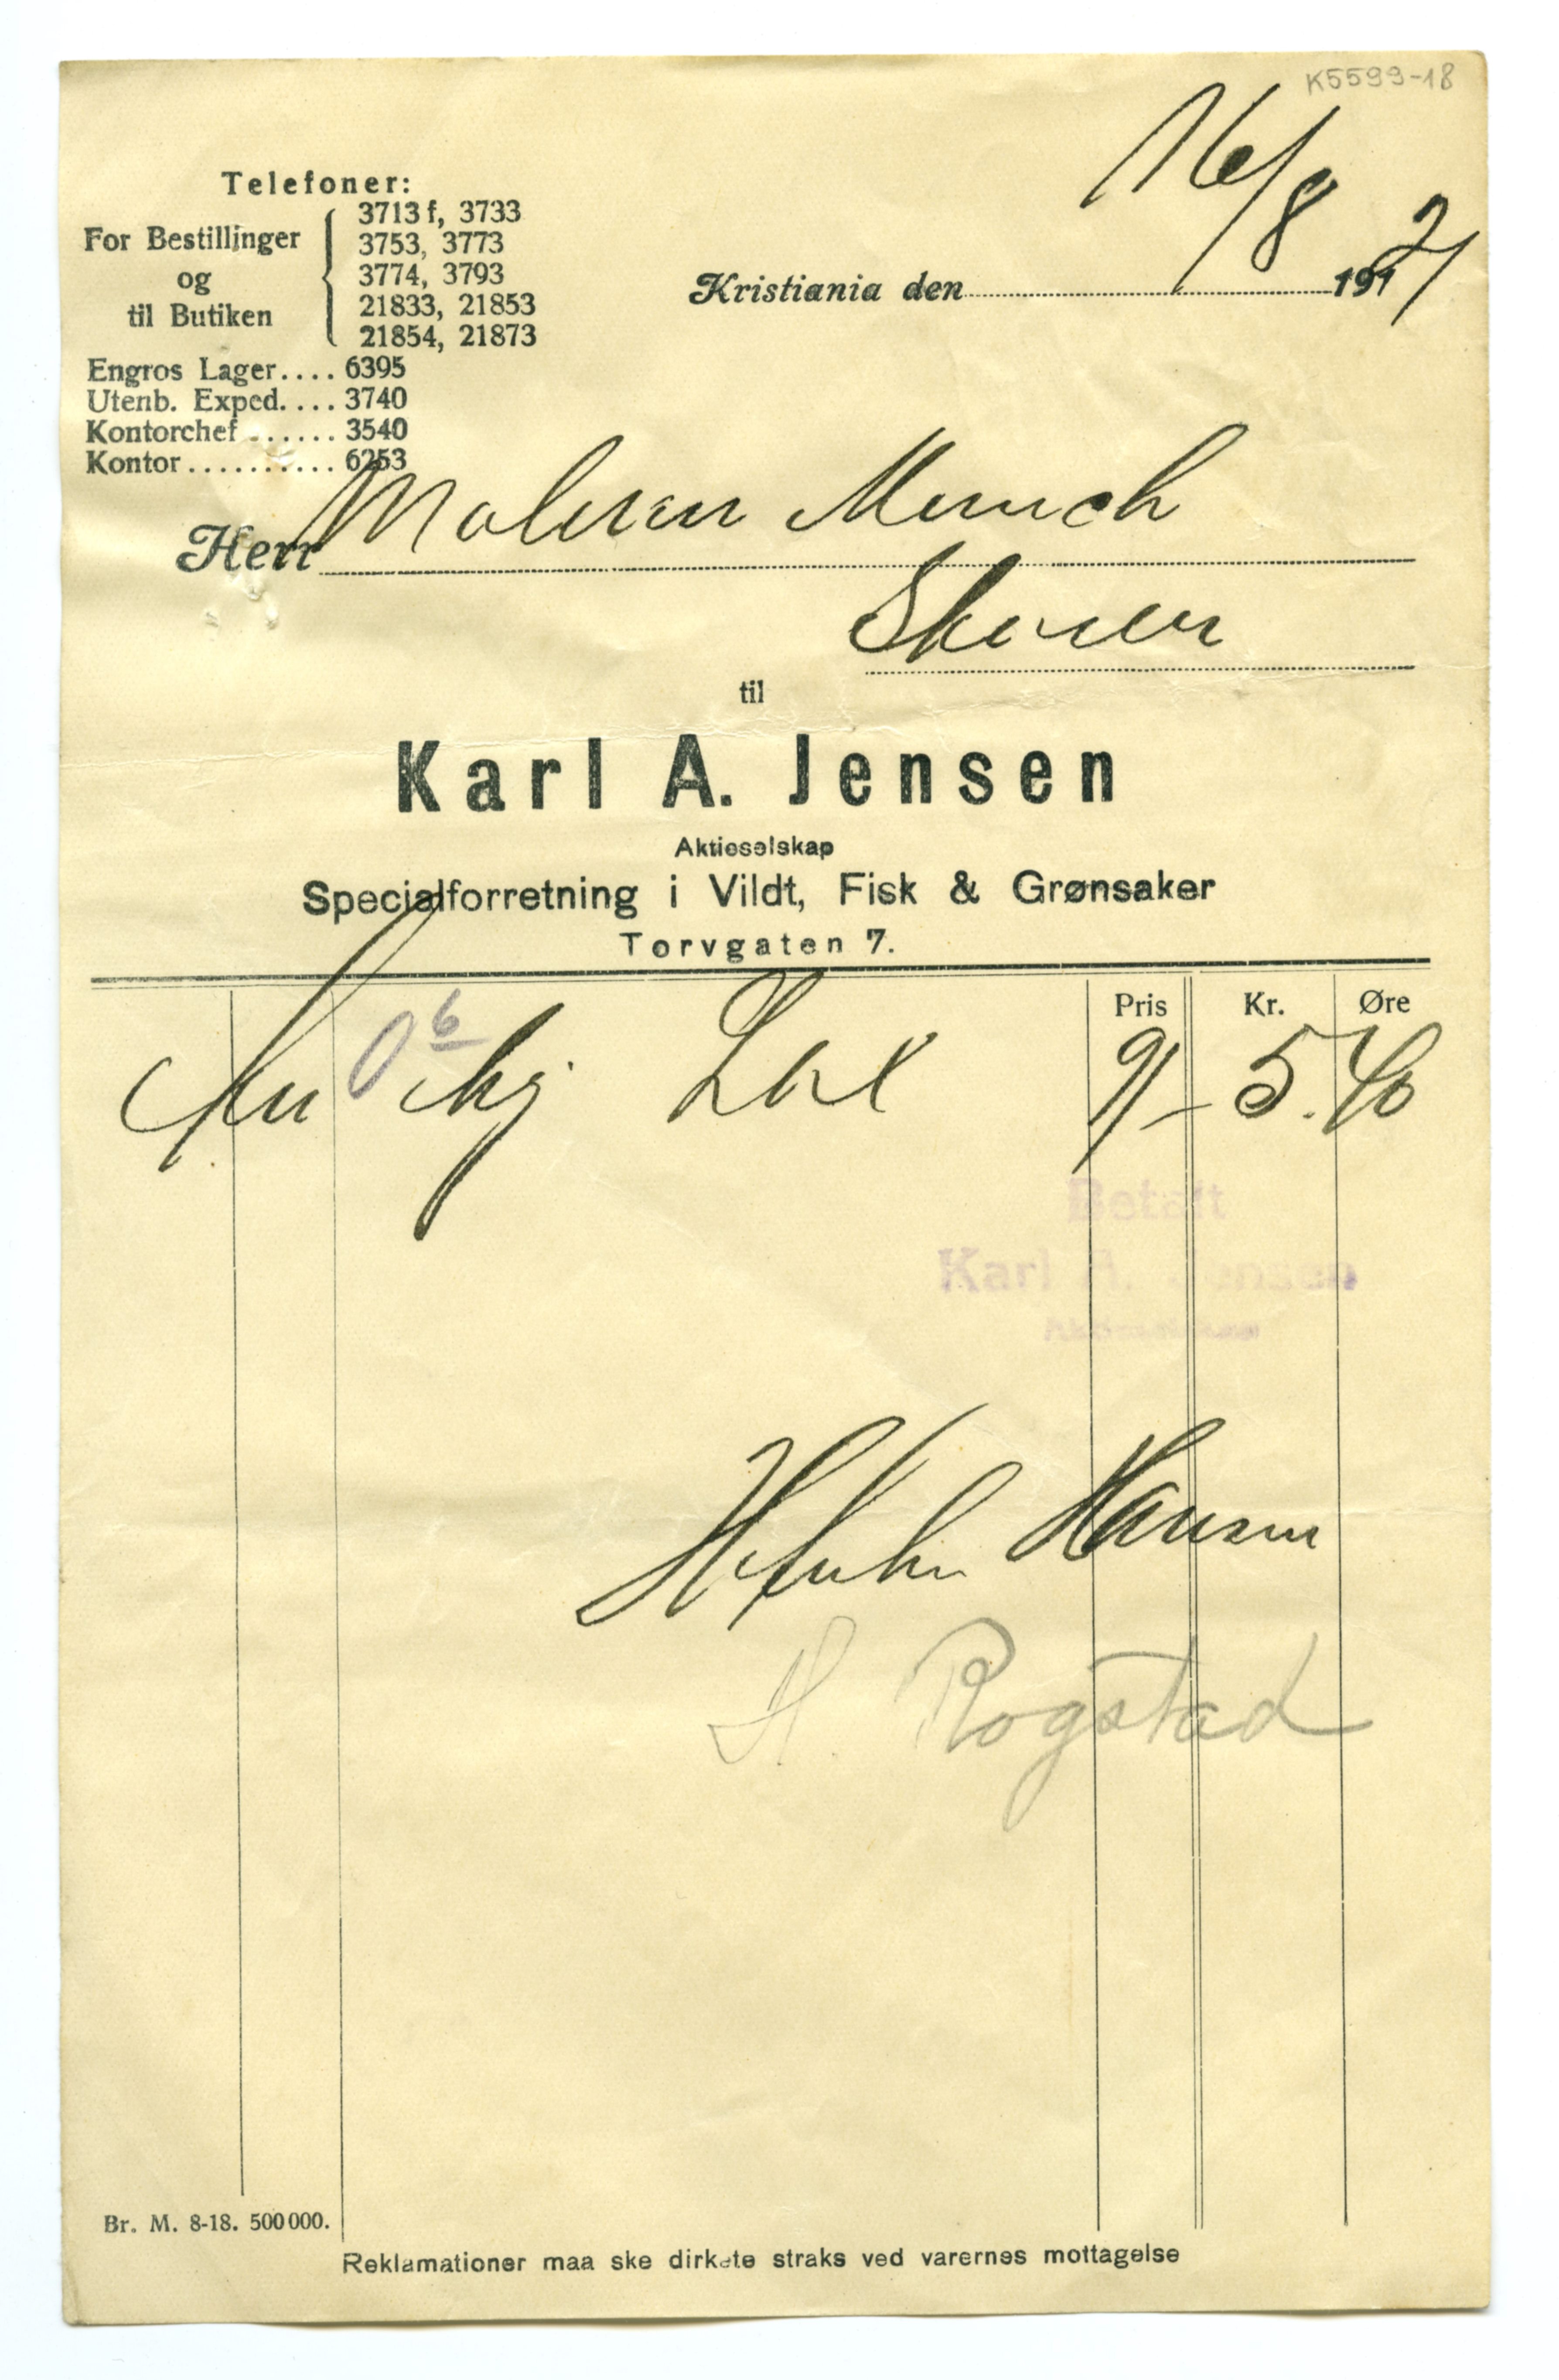 K5599-18
16/8 21
Telefoner:
For Bestillinger og til Butiken
3713 f, 3733
3753, 3773
3774, 3793
21833, 21853
21854, 21873
Kristiania den 191
Engros Lager.... 6395
Utenb. Exped.... 3740
Kontorchef...... 3540
Kontor.......... 6253
Herr Maleren Munch
Skøien
til
Karl A. Jensen
Aktieselskap
Specialforretning i Vildt, Fisk & Grønsaker
Torvgaten 7.
Pris Kr. Øre
0 6 kg Lax 9/- 5.40
Betalt
Karl A. Jensen
Aktieselskap
Hansen
H. Rogstad
Br. M. 8-18. 500 000.
Reklamationer maa ske dirkete straks ved varernes mottagelse